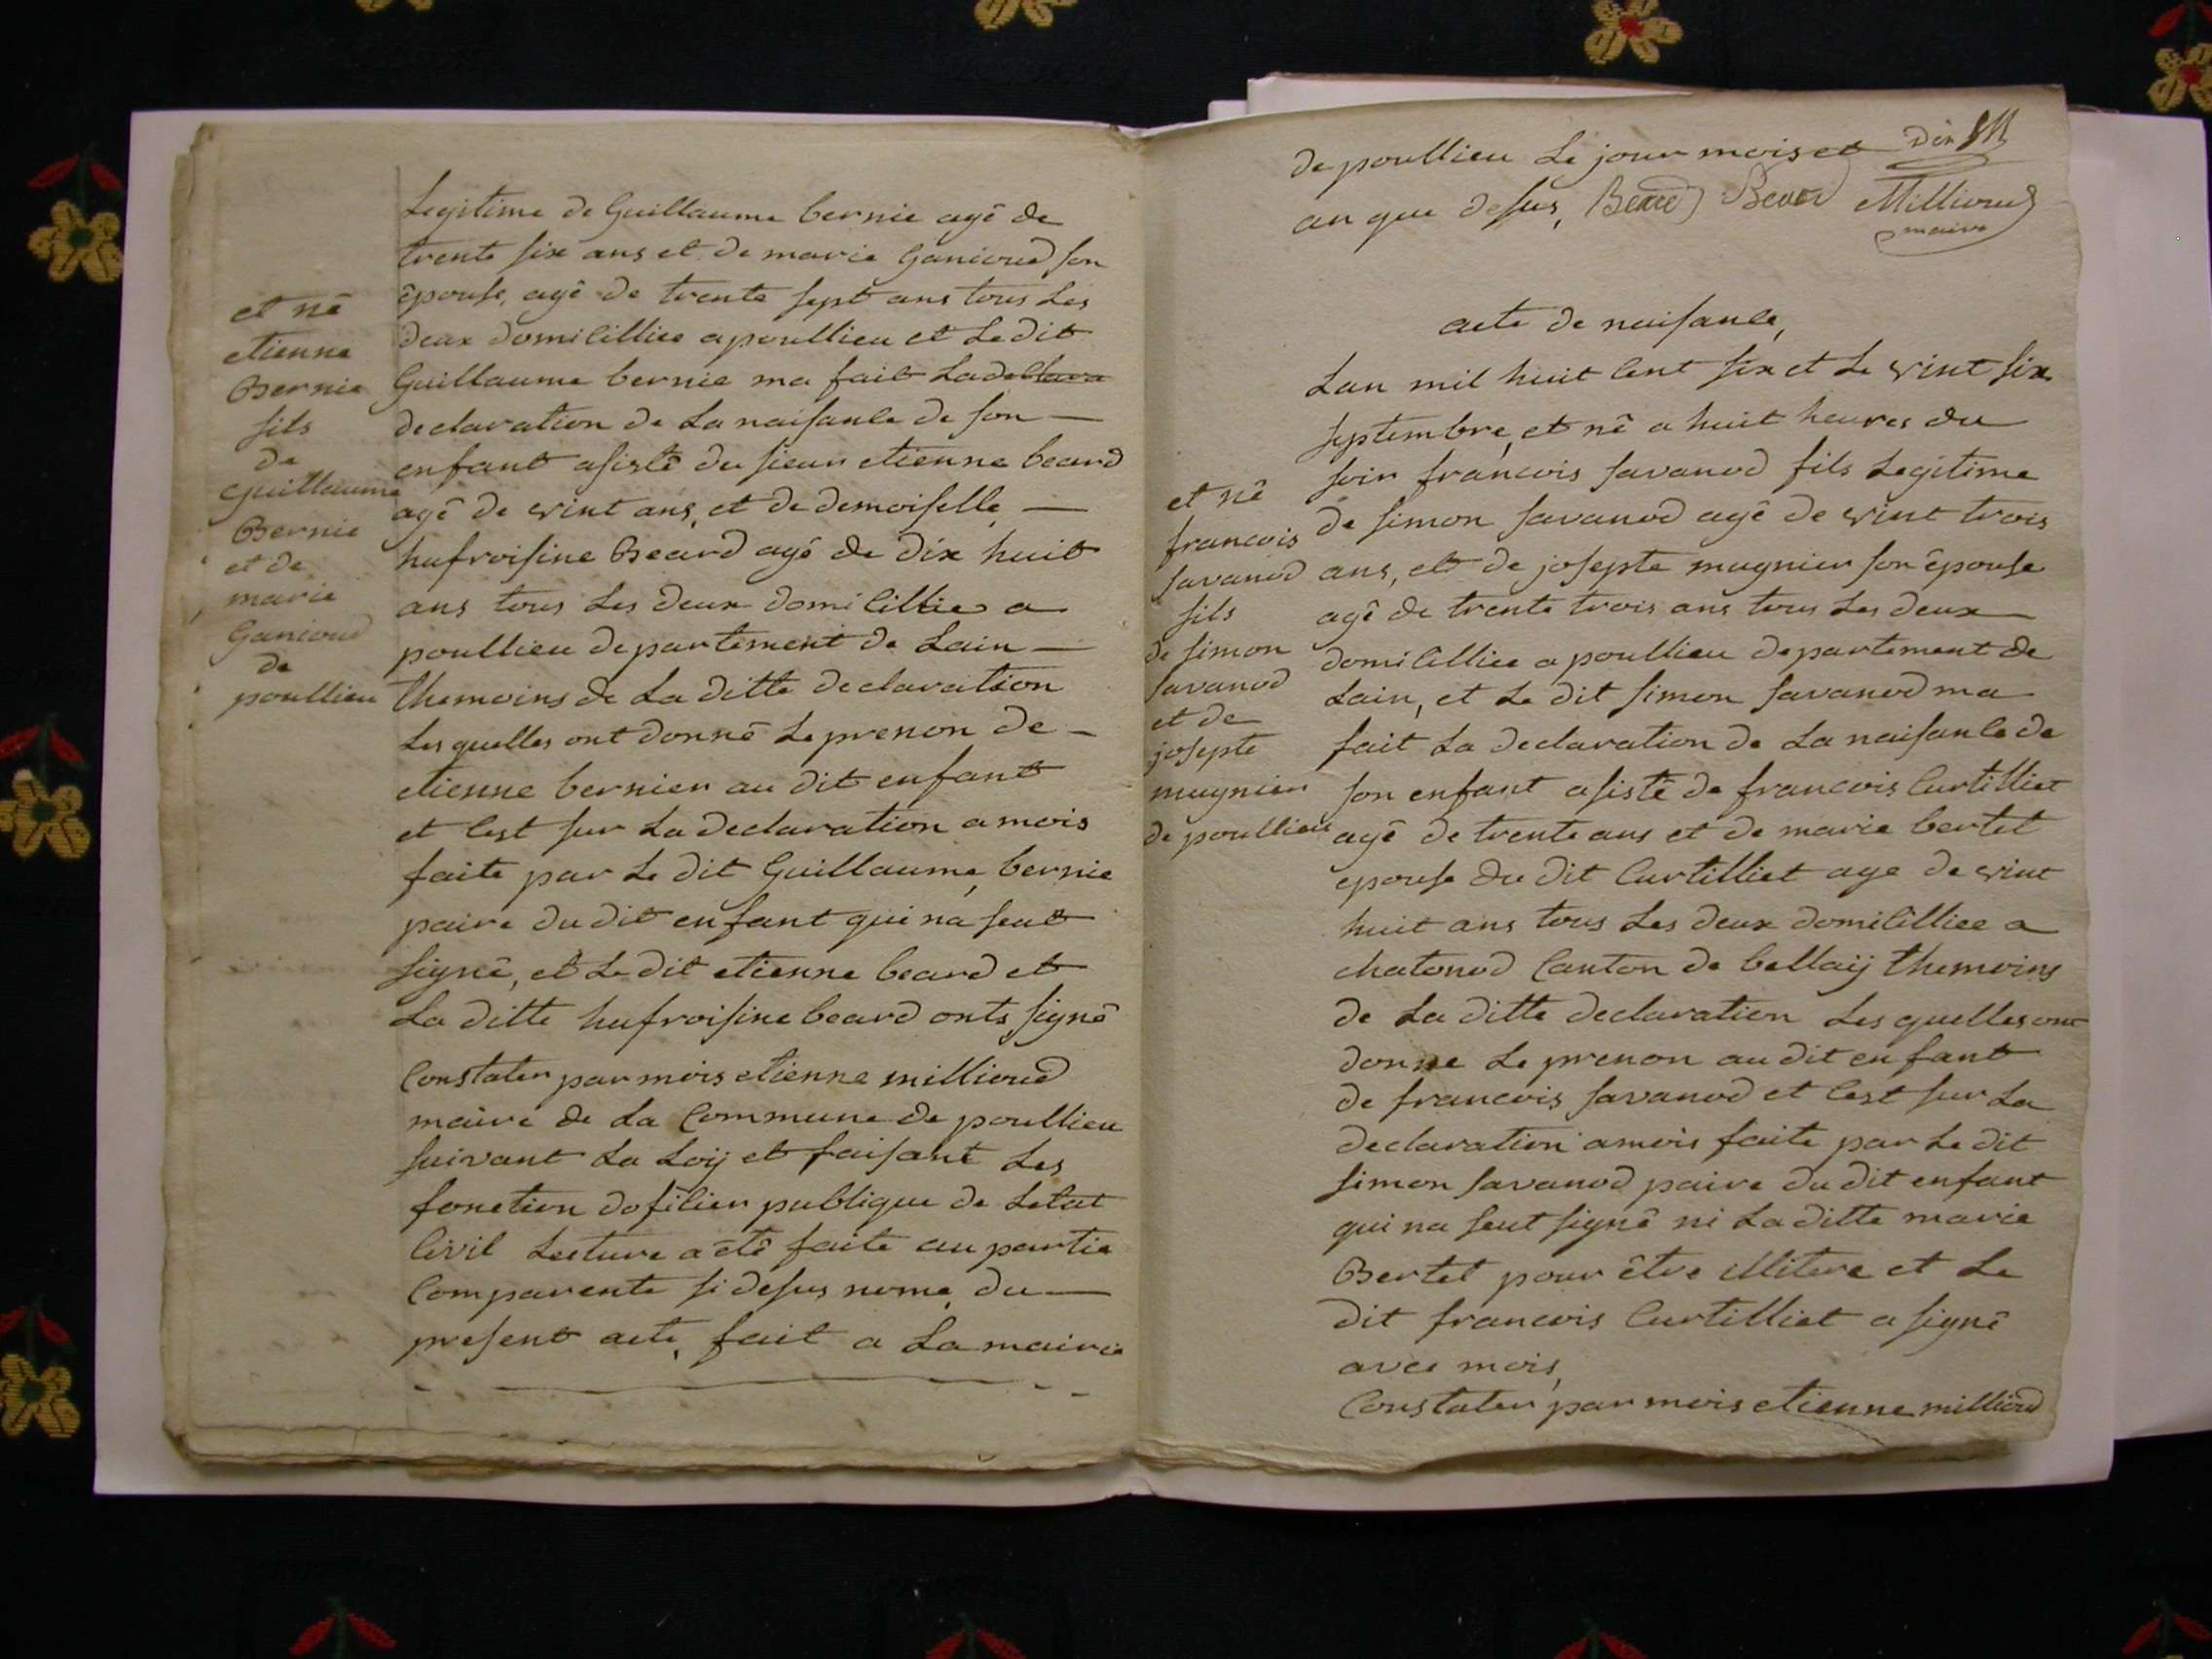 et nê
etienne
Bernie
fils
de
Guillaume
Bernie
et de
marie
Ganioud
de
poullieu
Legitime de Guillaume bernie agê de
trente six ans et de marie Ganioud son
êpouse, agê de trente sept ans tous les
deux domicilliee a poullieu et Le dit
Guillaume bernie ma fait La declara
declaration de La naisance de son —
enfant asistê du sieur etienne beard
agê de vint ans, et de demoiselle —
hufroisine Beard agê de dix huit
ans tous Les deux domicilliee a
poullieu departement de Lain —
themoins de La ditte declaration
Les quelles ont donnê Le prenon de —
etienne bernier au dit enfant
et cest sur La declaration a mois
faite par Le dit Guillaume, bernie
paire du dit enfant qui na seut
signê, et Le dit etienne beard et
La ditte hufroisine beard onts signê
Constater par mois etienne millioud
maire de La Commune de poullieu
suivant La Loÿ et faisant Les
fonction doficier publique de Letat
Civil Lecture a êtê faite au partie
Comparente si desus nome, du —
present acte, fait a La mairie
de poullieu Le jour mois et
an que desus, Beard Beard Millioud
maire
acte de naisance,
Lan mil huit cent six et Le vint six
septembre, et nê a huit heures du
soir francois savanod fils Legitime
de simon savanod agê de vint trois
ans, et de josepte mugnier son êpouse
agê de trente trois ans tous Les deux
domicilliee a poullieu departement de
Lain, et Le dit simon savanod ma
fait La declaration de La naisance de
son enfant asistê de francois Curtilliet
agê de trente ans et de marie bertet
epouse du dit Curtilliet age de vint
huit ans tous Les deux domicilliee a
chatonod Canton de bellaÿ themoins
de La ditte declaration Les quelles ont
donne Le prenon au dit enfant
de francois savanod et cest sur La
declaration a mois faite par Le dit
simon savanod paire du dit enfant
qui na seut signê ni La ditte marie
Bertet pour être illitere et Le
dit francois Curtilliet a signê
avec mois,
Constater par mois etienne millioud
et nê
francois
savanod
fils
de simon
savanod
et de
josepte
mugnier
de poullieu